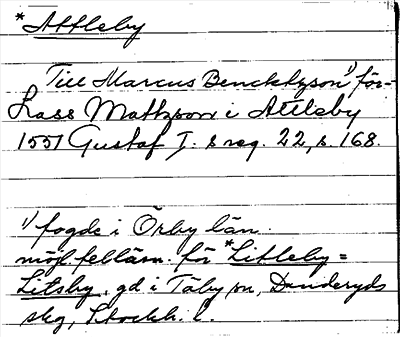 *Attleby
Till Marcus Bencktzson¹) för
Lass Mattzson i Attleby
1551 Gustaf I. s reg. 22, s. 168.
¹) fogde i Örby län.
möjl felläsn. för *Litleby =
Litsby, gd i Täby sn, Danderyds
skg, Stockh. l.